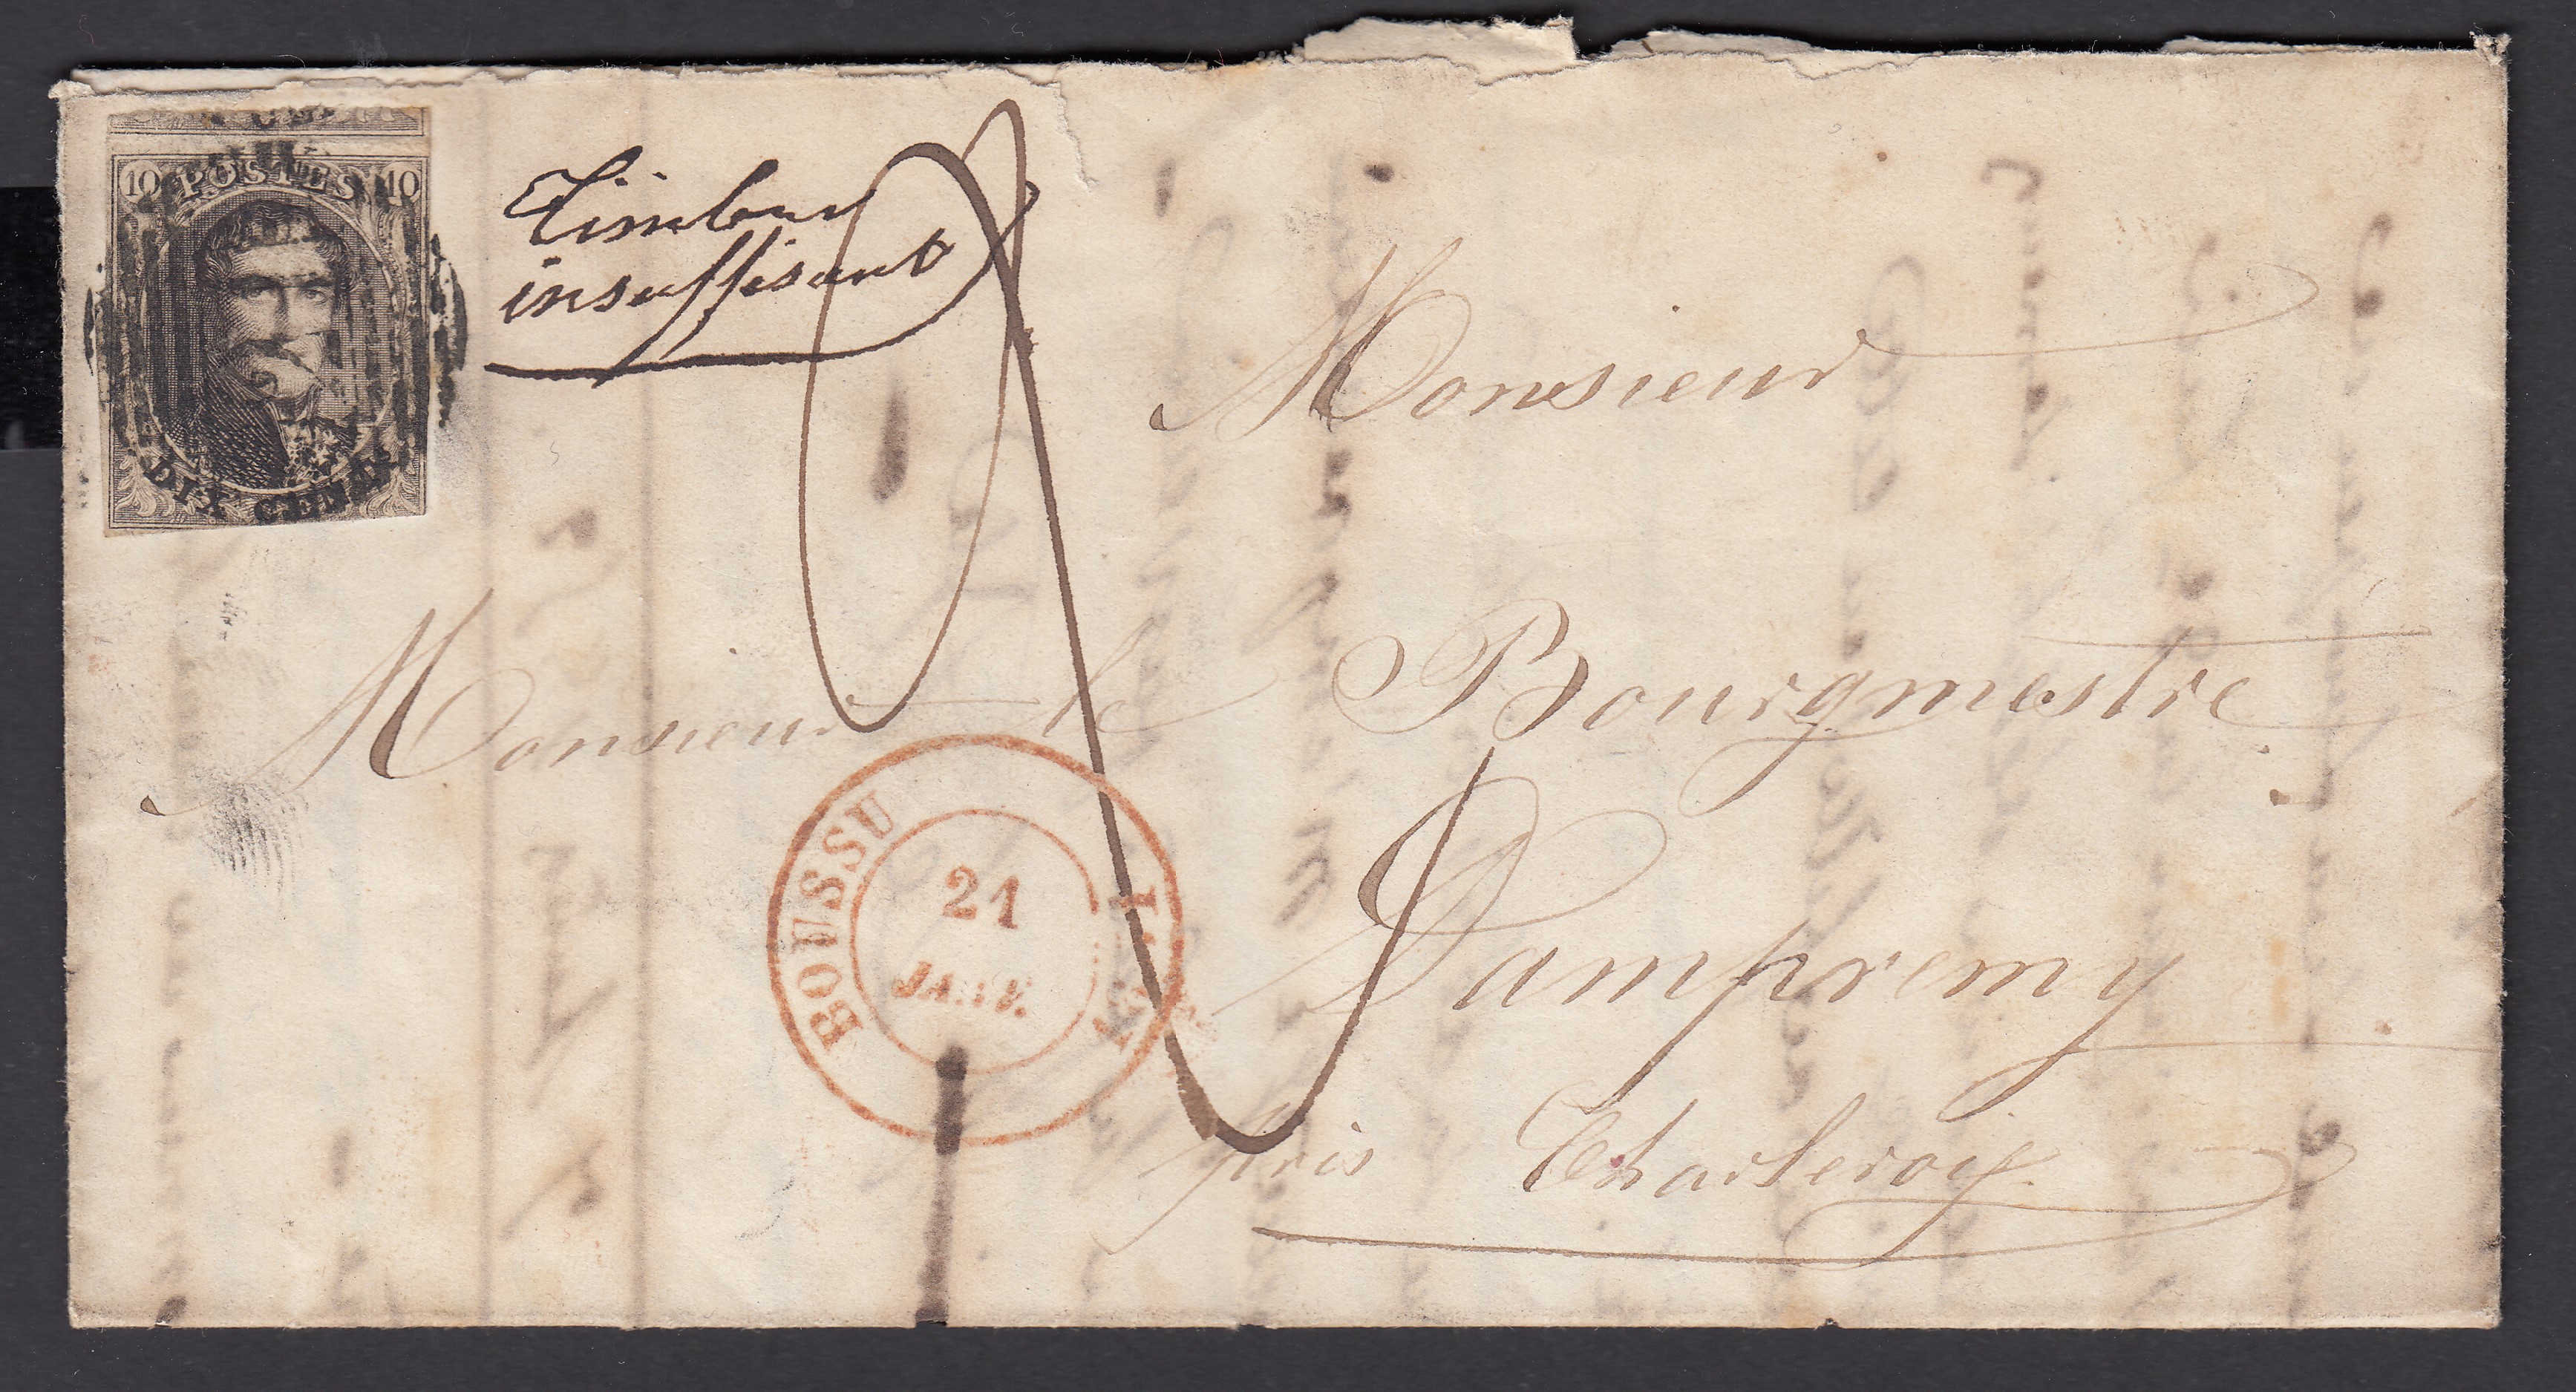 10 POSTES 10
DIX CENTS
Timbre
insuffisant
Monsieur
Monsieur le Bourgmestre
Dampremy
près Charleroy.
BOUSSU
21
JANV.